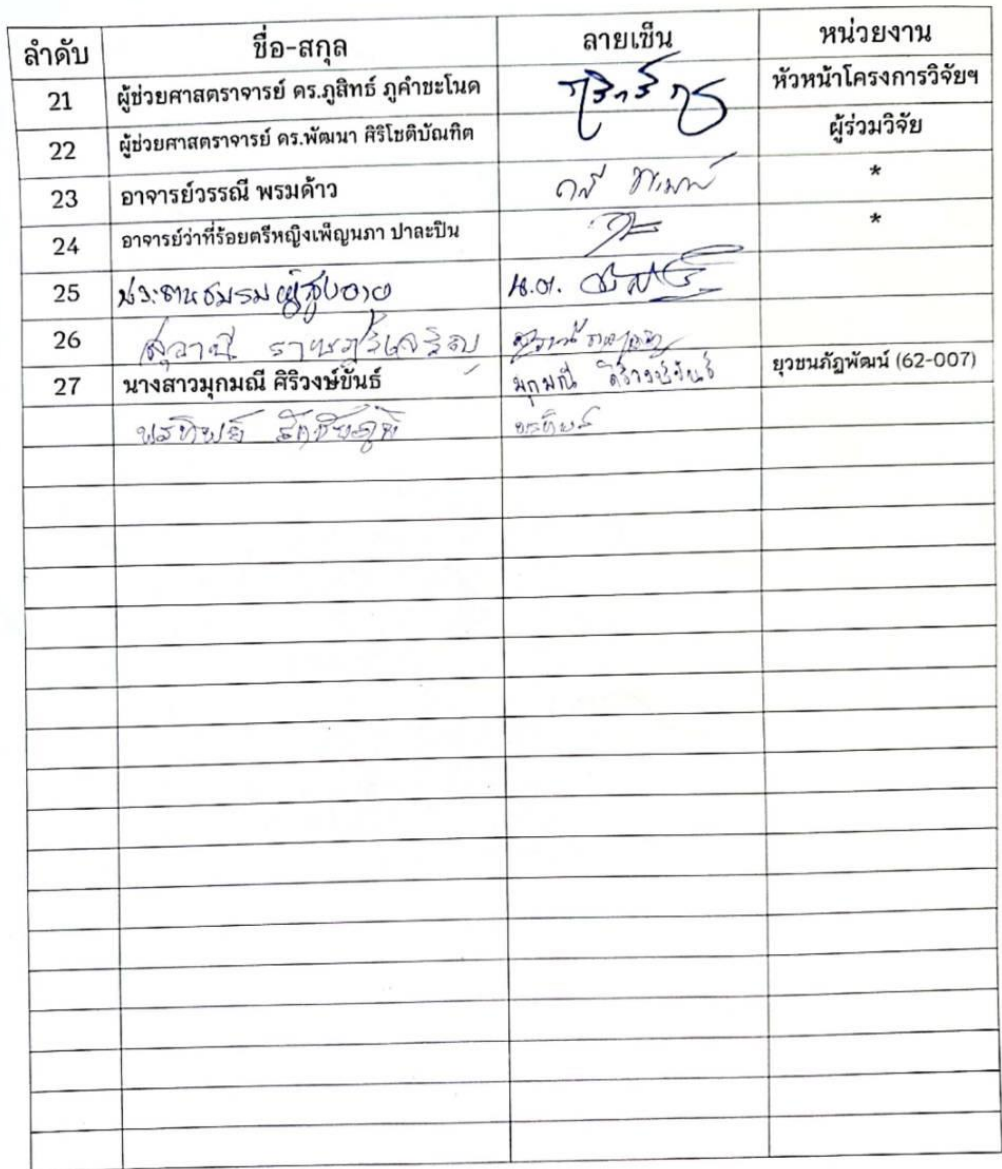 ลำดับ ชื่อ-สกุล ลายเซ็น หน่วยงาน
21 ผู้ช่วยศาสตราจารย์ ดร.ภูสิทธ์ ภูคำชะโนด หัวหน้าโครงการวิจัยฯ
22 ผู้ช่วยศาสตราจารย์ ดร.พัฒนา ศิริโชติบัณฑิต ผู้ร่วมวิจัย
23 อาจารย์วรรณี พรมด้าว *
24 อาจารย์ว่าที่ร้อยตรีหญิงเพ็ญนภา ปาละปิน *
25 ประธานชมรมผู้สูงอายุ
26
27 นางสาวมุกมณี ศิริวงษ์ขันธ์ มุกมณี ศิริวงษ์ขันธ์ ยุวชนภัฏพัฒน์ (62-007)
พรทิพย์ พรทิพย์